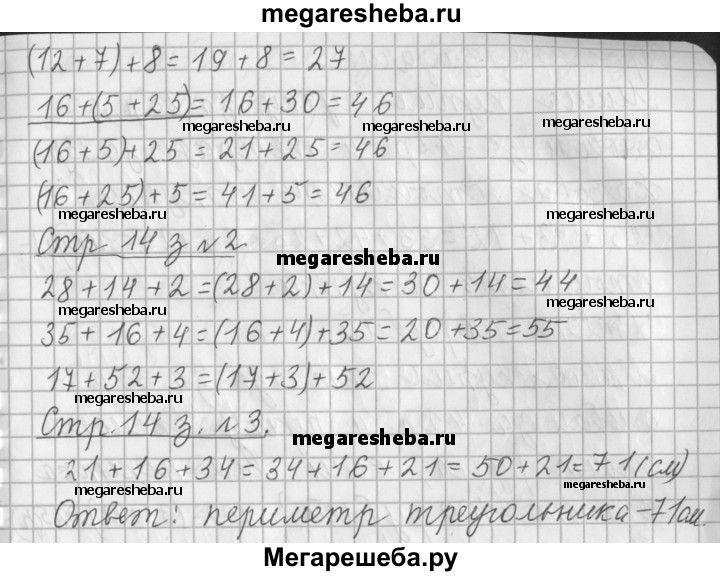 megaresheba.ru
(12+7)+8=19+8=27
megaresheba.ru
16+(5+25)=16+30=46
megaresheba.ru megaresheba.ru megaresheba.ru
(16+5)+25=21+25=46
(16+25)+5=41+5=46
megaresheba.ru megaresheba.ru megaresheba.ru
Стр 14 з №2.
megaresheba.ru
28+14+2=(28+2)+14=30+14=44
megaresheba.ru
35+16+4=(16+4)+35=20+35=55
17+52+3=(17+3)+52
megaresheba.ru megaresheba.ru
Стр. 14 з. №3.
megaresheba.ru
21+16+34=34+16+21=50+21=71(см)
megaresheba.ru megaresheba.ru
Ответ: периметр треугольника-71см.
Мегарешеба.ру